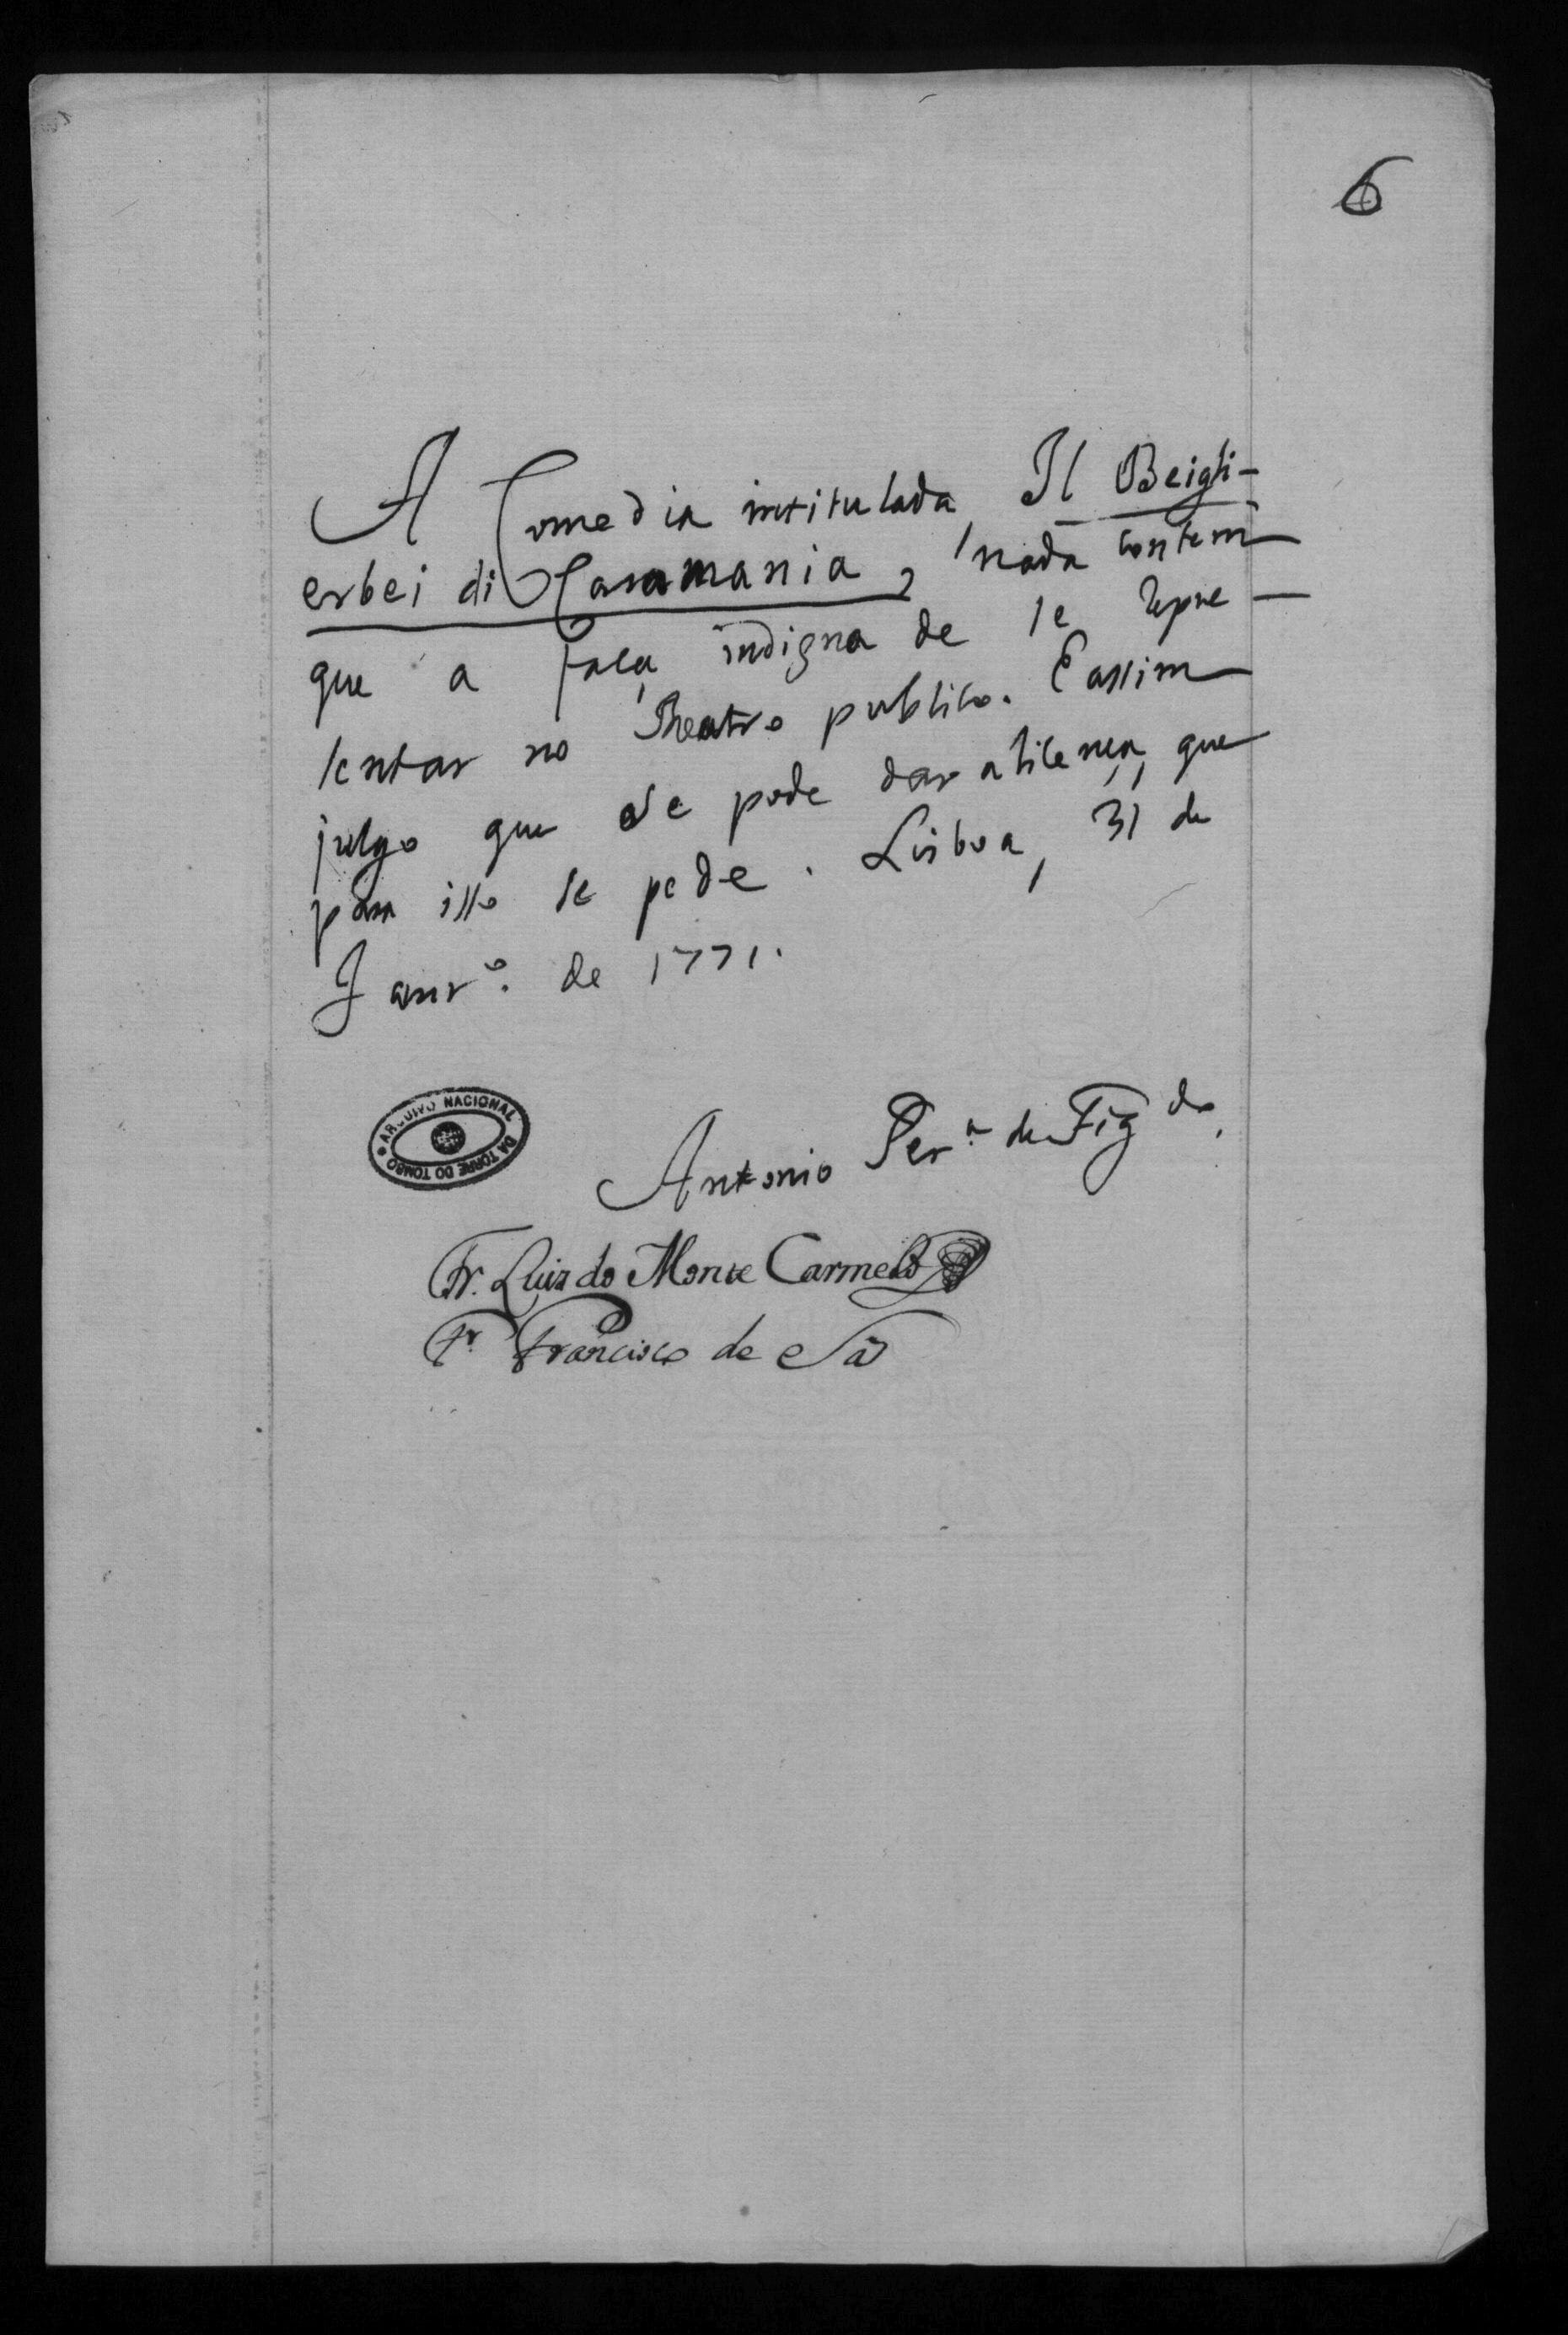 6
A Comedia intitulada, Il Beigli-
erbei di Caramania, nada contem
que a faça indigna de se repre-
sentar no Theatro publico. E assim
julgo que se pode dar a licença, que
para isso se pede. Lisboa, 31 de
Janrº. de 1771.
ARQUIVO NACIONAL DA TORRE DO TOMBO
Antonio Perª. de Figdo.
Fr. Luiz do Monte Carmelo
Fr. Francisco de Sá